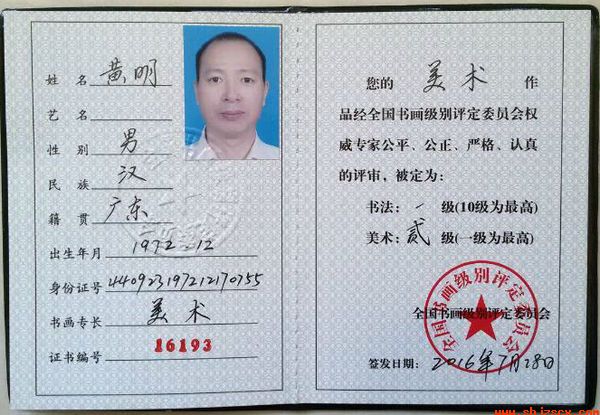 姓 名 黄明
艺 名
性 别 男
民 族 汉
籍 贯 广东
出生年月 1972-12
身份证号 440923197212170755
书画专长 美术
证书编号 16193
您的 美术 作
品经全国书画级别评定委员会权
威专家公平、公正、严格、认真
的评审，被定为：
书法：一 级(10级为最高)
美术：贰 级(一级为最高)
全国书画级别评定委员会
全国书画级别评定委员会
签发日期：2016年7月28日
www.shjzscx.com